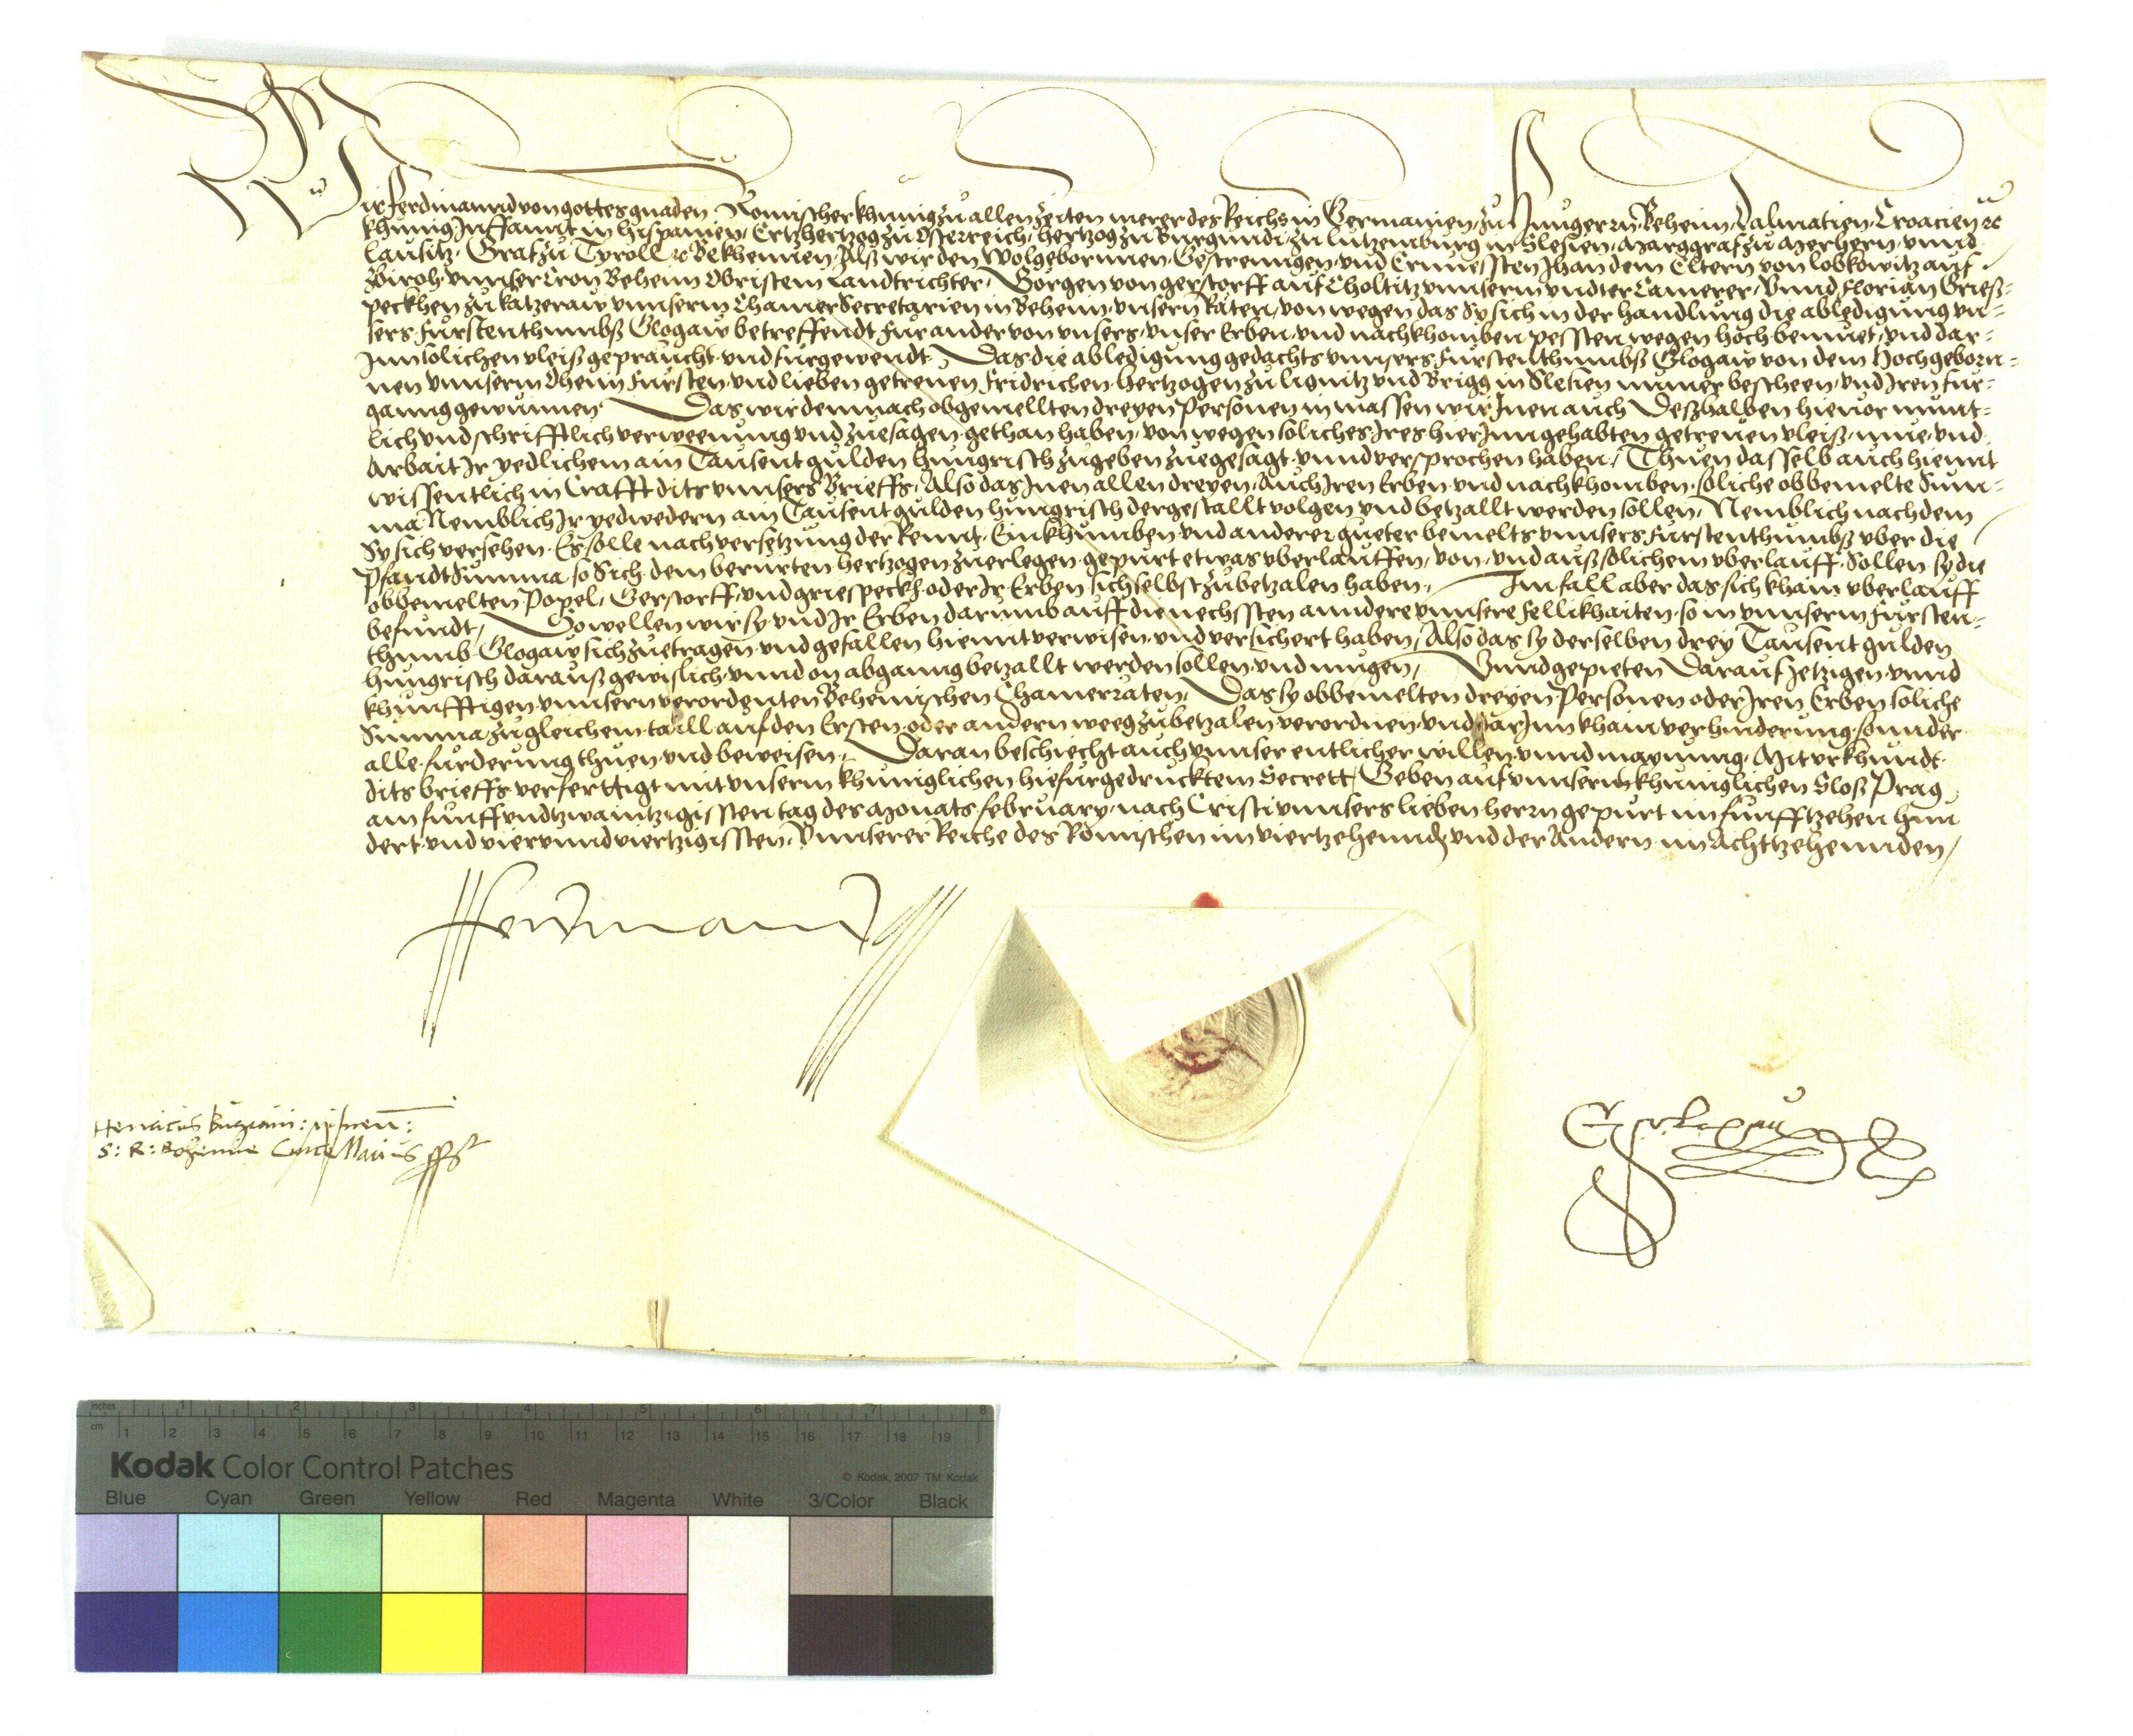 Wir Ferdinannd von gottes gnaden Romischer khunig zu allen Zeiten merer des Reichs in Germanien, zu Hungern, Beheim, Dalmatien, Croacien ꝛc
khunig Inffannt in Hispanien, Ertzhertzog zu Osterreich, Hertzog zu Burgundi, zu Lutzemburg in Slesien, Marggraf zu Merhern, vnnd
Lausitz, Graf zu Tyroll ꝛc Bekhennen, Alß wir den Wolgebornnen, Gestrenngen, vnd Ernuessten Jhan dem Eltern von Lobkowitz auf
Biroh, vnnser Cron Beheim Obristem Landtrichter, Görgen von Gerstorff auf Choltitz vnnserm vndter Camerer, Vnnd Florian Grieß=
peckhen zu Katzeraw vnnserm Chamer Secretarien in Beheim, vnsern Räten, von wegen das Sy sich in der handlung die abledigung vn=
sers Fürstenthumbß Glogaw betreffendt fur ander von vnsers, vnser Erben, vnd nachkhomben pessten wegen hoch bemuet, vnd dar=
Inn solichen vleiß gepraucht vnd furgewendt, Das die abledigung gedachts vnnsers Fürstenthumbß Glogaw von dem Hochgeborn=
nen vnnserm Oheim Fürsten vnd lieben getreuen Fridrichen Hertzogen zu Lignitz vnd Brigg in Slesien nuner bescheen, vnd Iren fur=
ganng gewunnen Das wir demnach obgemellten dreyen Personen in massen wir Inen auch Deßhalben hieuor munt=
lich vnd schrifftlich verweenung vnd zuesagen gethan haben, von wegen soliches Ires hier Inn gehabten getreuen vleiß, mue, vnd
Arbait Ir yedlichem ain Tausent gulden hungrisch zugeben zuegesagt vnnd versprochen haben, Thuen dasselb auch hiemit
wissentlich in Crafft dits vnnsers Brieffs, Also das Inen allen dreyen, Auch Iren Erben vnd nachkhomben soliche obbemelte Sum=
ma Nemblich Ir yedwedern ain Tausent gulden hungrisch dergestallt volgen vnd betzallt werden sollen, Nemblich nachdem
Sy sich versehen, Es solle nach versetzung der Rennt, Einkhumben vnd anderer gueter bemelts vnnsers Fürstenthumbß vber die
Pfandt Summa so Sich dem berurten Hertzogen zuerlegen gepurt etwas vberlauffen, von, vnd auß solichem vberlauff Sollen Sy die
obbemelten Popel, Gerstorff, vnd griespeckh oder Ir Erben sich selbst zu betzalen haben, Im fall aber das sich khain vberlauff
befundt, So wellen wir Sy vnd Ir Erben darumb auff die nechssten anndere vnnsere fellikhaiten, so in vnnserm Fursten=
thumb Glogaw sich zuetragen vnd gefallen hiemit verwisen vnd versichert haben, Also das Sy derselben drey Tausent gulden
hungrisch darauß gewislich, vnnd on abganng betzallt werden sollen vnd mugen, Vnnd gepieten Darauf Jetzigen vnnd
khunfftigen vnnsern verordenten Behemischen Chamer räten, Das Sy obbemelten dreyen Personen oder Iren Erben soliche
Summa zu gleichem taill auf den Ersten oder andern weeg zu betzalen verordnen, vnd dar Inn khain verhinderung, sonnder
alle furderung thuen vnd beweisen, Daran beschiecht auch vnnser entlicher willen vnnd maynung, Mit vrkhundt
dits brieffs verferttigt mit vnserm khuniglichen hiefurgedrucktem Secrett, Geben auf vnnserm khuniglichen Sloß Prag
am funffvndtzwaintzigissten tag des Monats february, nach Cristi vnnsers lieben herrn gepurt im funfftzehen hun
dert vnd viervnndviertzigissten, Vnnserer Reiche des Romischen im viertzehennd, vnd der Andern im Achttzehennden,
Ferdinand
Henricus
S: R: Bohemie Cancellarius
inches 1 2 3 4 5 6 7 8
cm 1 2 3 4 5 6 7 8 9 10 11 12 13 14 15 16 17 18 19
Kodak Color Control Patches
© Kodak, 2007 TM: Kodak
Blue Cyan Green Yellow Red Magenta White 3/Color Black